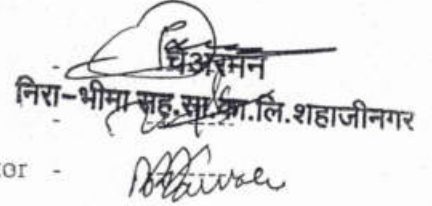 -
चेअरमन
निरा-भीमा सह.सा.का.लि.शहाजीनगर
-
tor -